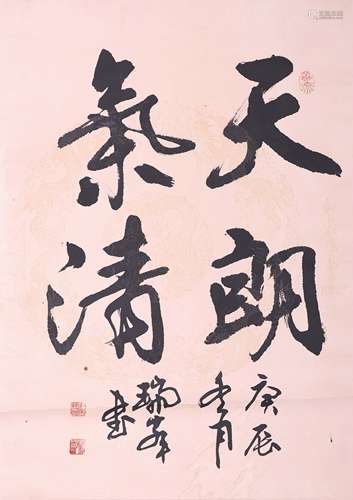 天朗
氣清
庚辰
冬月
瑞峯
書